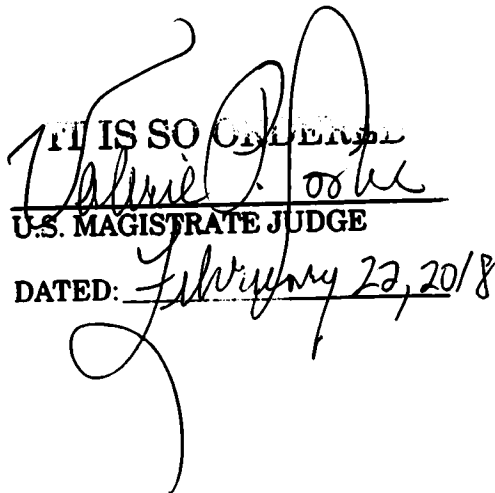 IT IS SO ORDERED
Valerie P. Cooke
U.S. MAGISTRATE JUDGE
DATED: February 22, 2018